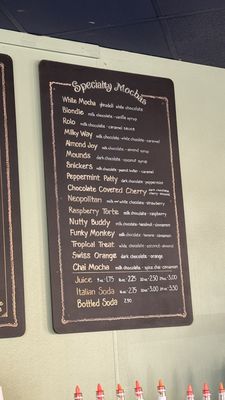 Specialty Mochas
White Mocha ghiradelli white chocolate
Blondie milk chocolate - vanilla syrup
Rolo milk chocolate - caramel sauce
Milky Way milk chocolate - white chocolate - caramel
Almond Joy milk chocolate - almond syrup
Mounds dark chocolate - coconut syrup
Snickers milk chocolate - peanut butter - caramel
Peppermint Patty dark chocolate - peppermint
Chocolate Covered Cherry dark chocolate - cherry
Neopolitan milk and white chocolate - strawberry
Raspberry Torte milk chocolate - raspberry
Nutty Buddy milk chocolate - hazelnut - cinnamon
Funky Monkey milk chocolate - banana - cinnamon
Tropical Treat white chocolate - coconut - almond
Swiss Orange dark chocolate - orange
Chai Mocha milk chocolate - spice chai - cinnamon
Juice 8 oz - 1.75 12 oz - 2.25 16 oz - 2.50 20 oz - 3.00
Italian Soda 12 oz - 2.75 16 oz - 3.00 20 oz - 3.50
Bottled Soda 2.50